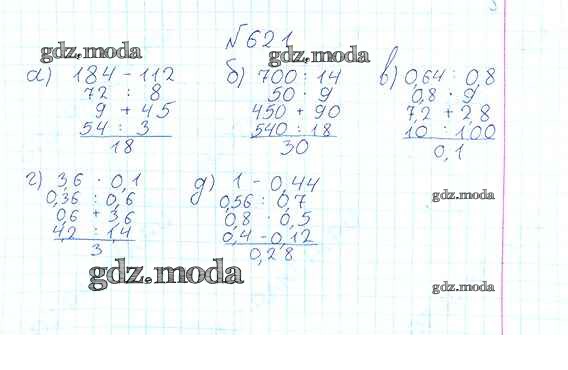 № 621
gdz.moda
gdz.moda
а) 184 - 112
72 : 8
9 + 45
54 : 3
18
б) 700 : 14
50 · 9
450 + 90
540 : 18
30
в) 0,64 : 0,8
0,8 · 9
7,2 + 2,8
10 : 100
0,1
gdz.moda
г) 3,6 · 0,1
0,36 : 0,6
0,6 + 3,6
4,2 : 1,4
3
д) 1 - 0,44
0,56 : 0,7
0,8 · 0,5
0,4 - 0,12
0,28
gdz.moda
gdz.moda